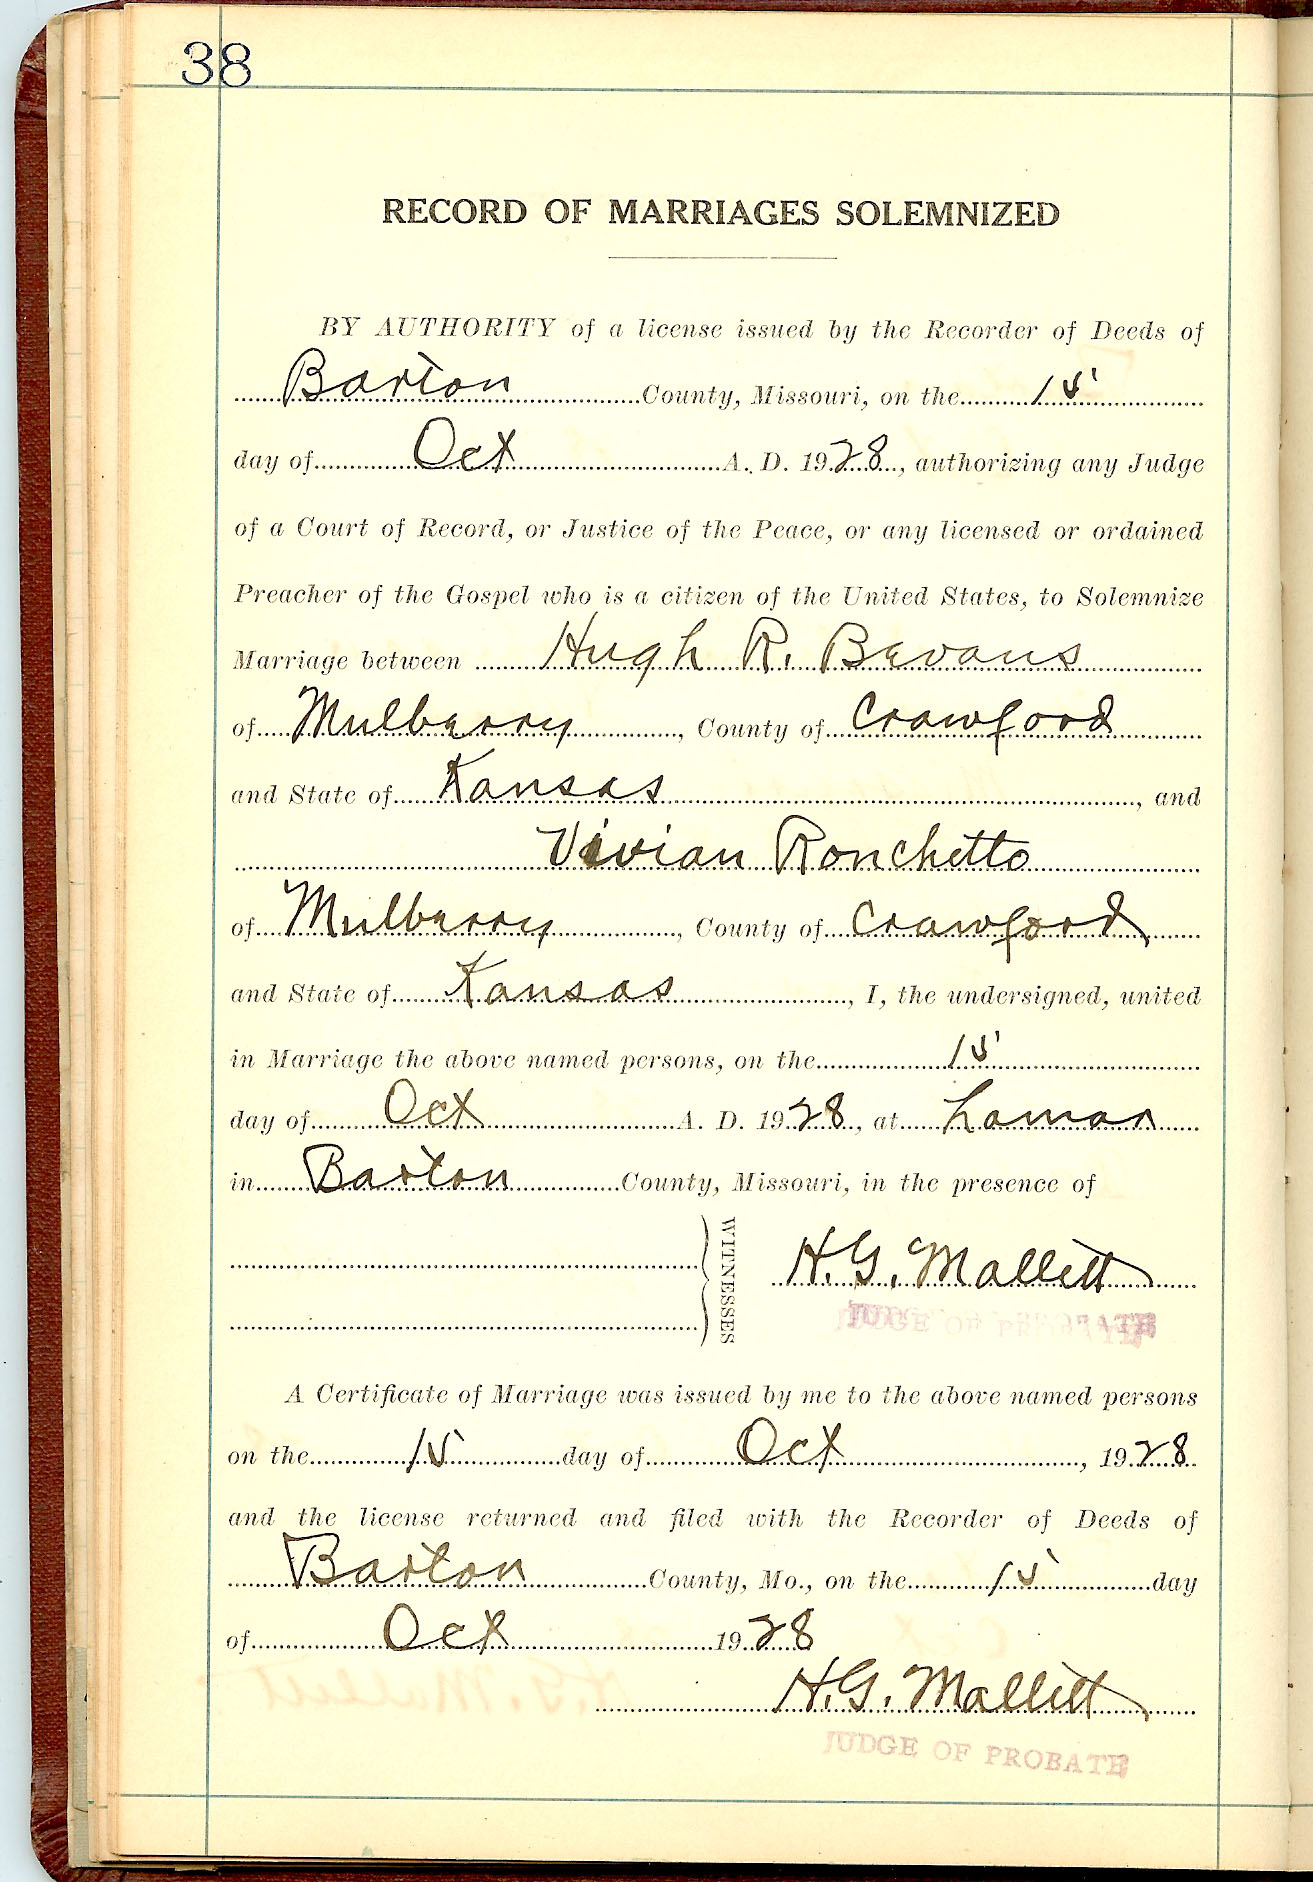 38
RECORD OF MARRIAGES SOLEMNIZED
BY AUTHORITY of a license issued by the Recorder of Deeds of
Barton County, Missouri, on the 15
day of Oct A. D. 1928, authorizing any Judge
of a Court of Record, or Justice of the Peace, or any licensed or ordained
Preacher of the Gospel who is a citizen of the United States, to Solemnize
Marriage between Hugh R. Bevans
of Mulberry, County of Crawford
and State of Kansas, and
Vivian Ronchetto
of Mulberry, County of Crawford
and State of Kansas, I, the undersigned, united
in Marriage the above named persons, on the 15
day of Oct A. D. 1928, at Lamar
in Barton County, Missouri, in the presence of
WITNESSES
H. G. Mallett
JUDGE OF PROBATE
A Certificate of Marriage was issued by me to the above named persons
on the 15 day of Oct, 1928
and the license returned and filed with the Recorder of Deeds of
Barton County, Mo., on the 15 day
of Oct 1928
H. G. Mallett
JUDGE OF PROBATE